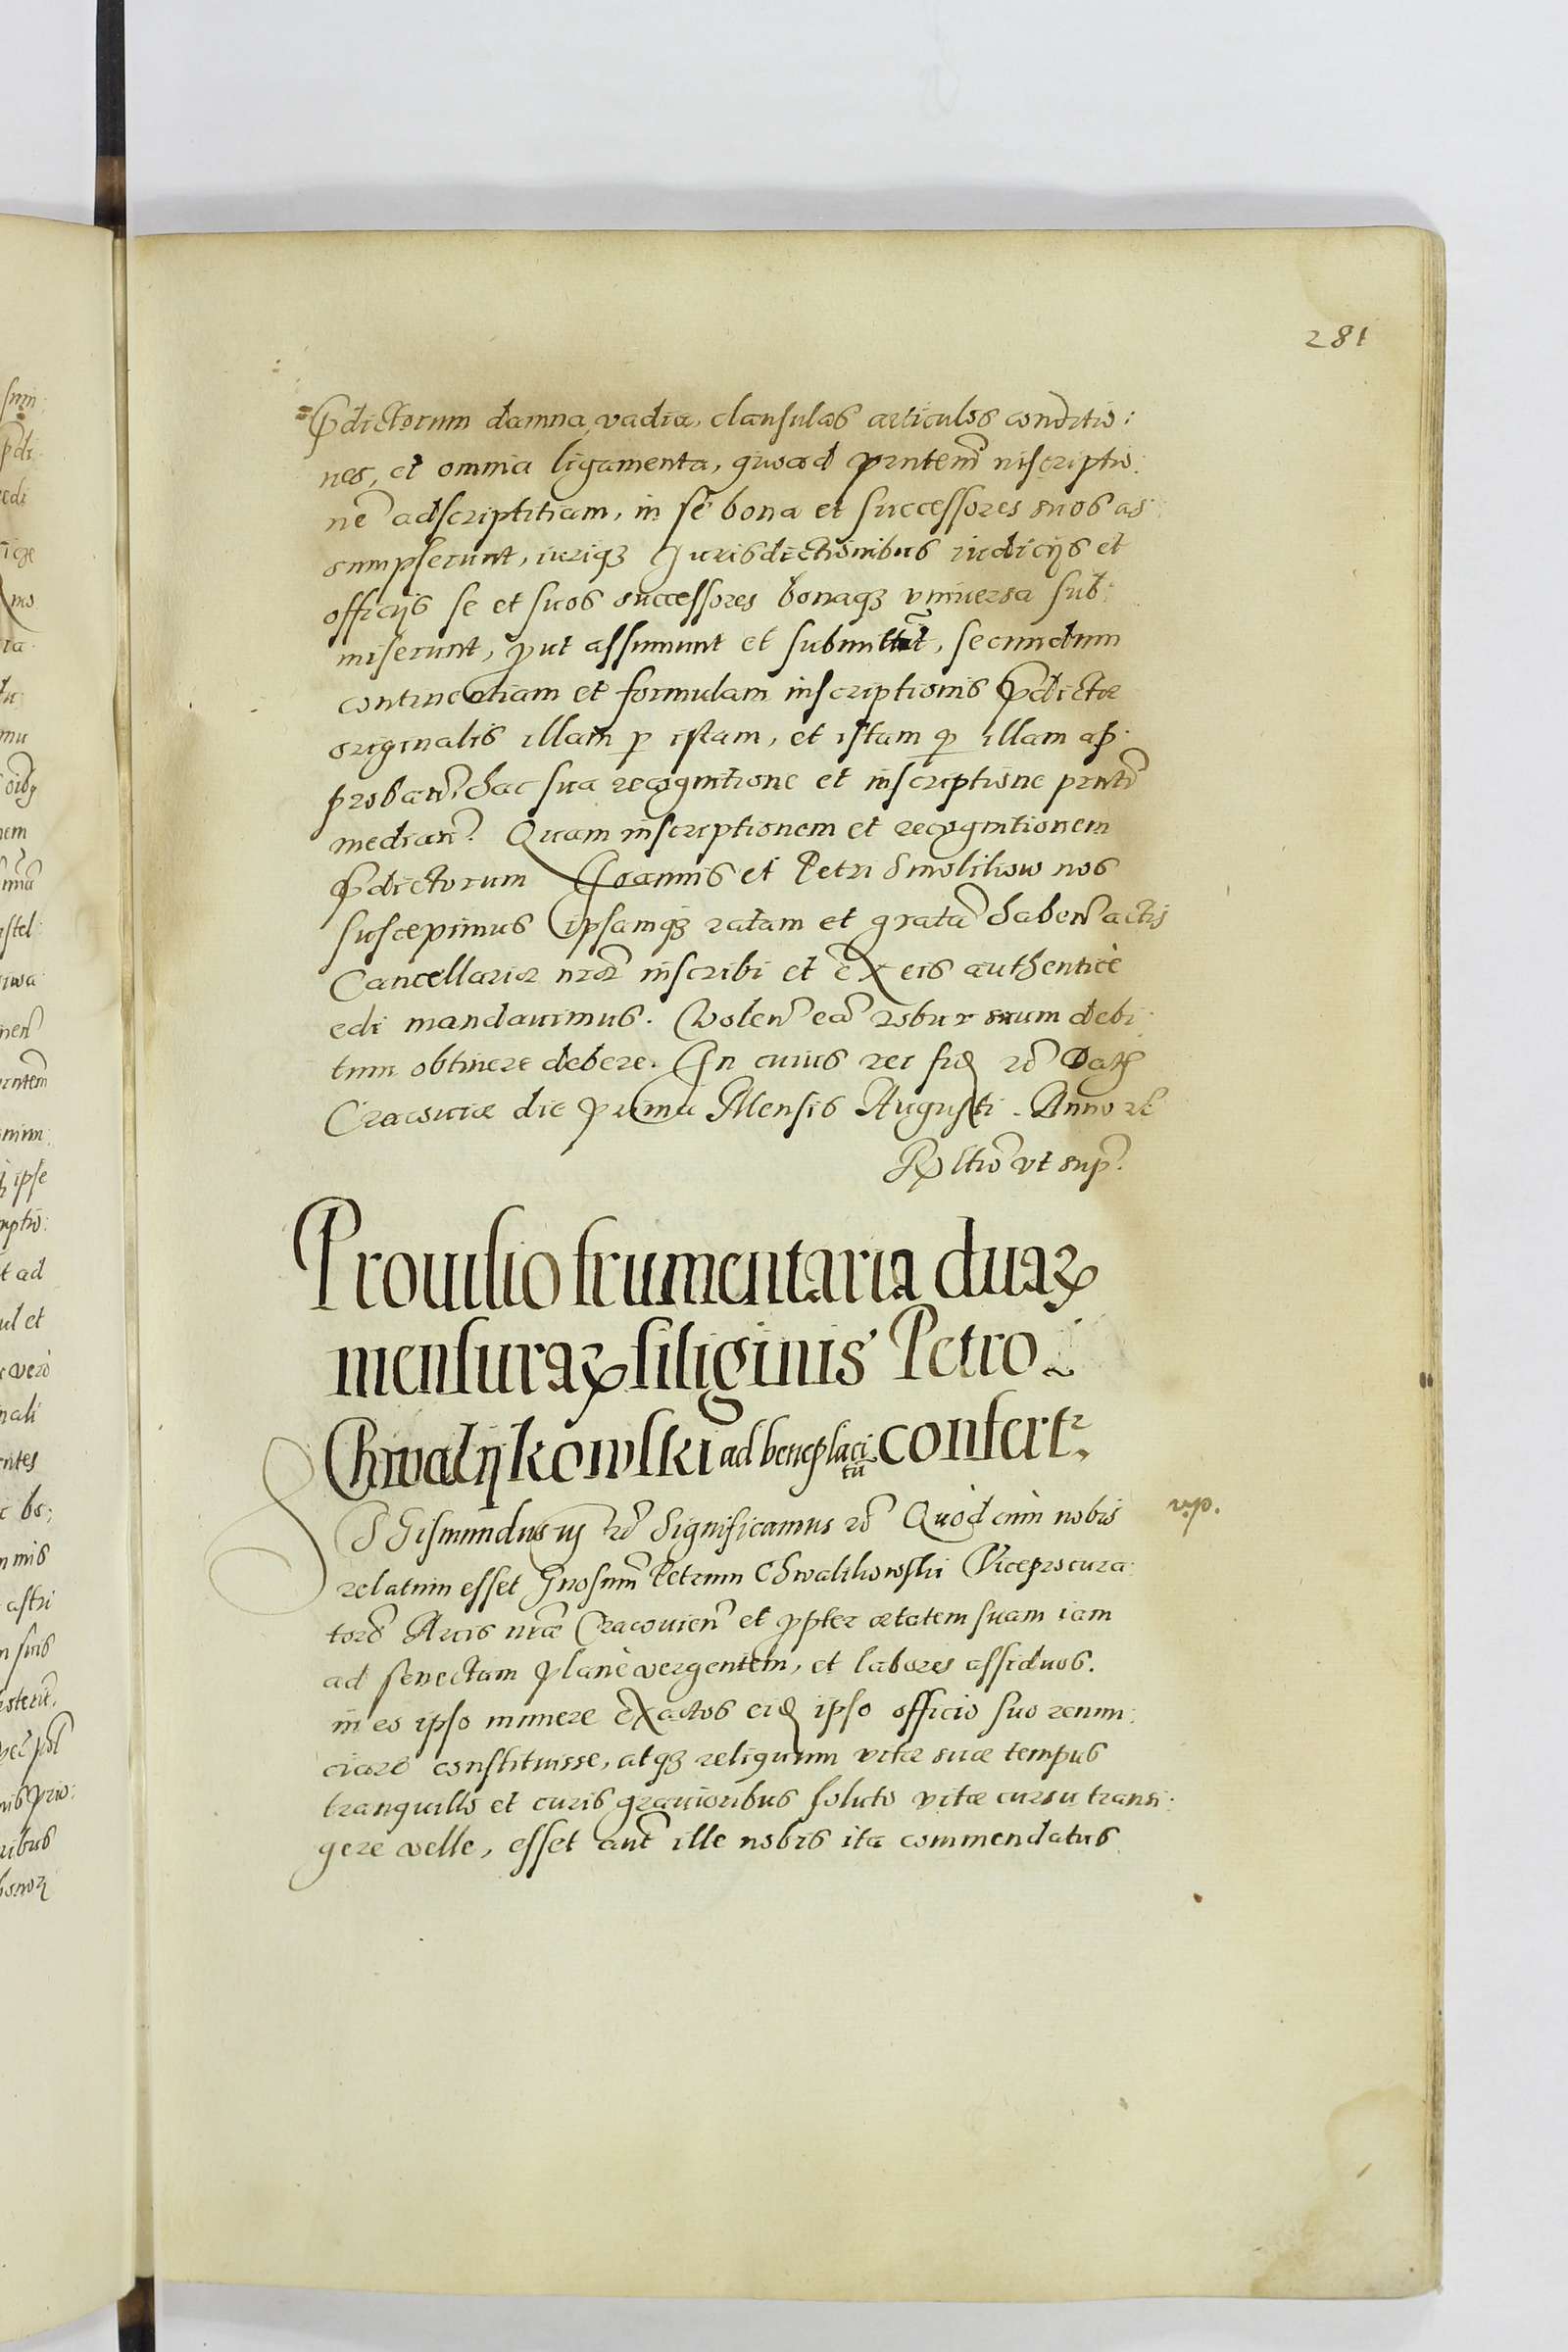 281
=Pdictorum damna, vadia, clausulas articulos conditio:
nes, et omnia ligamenta, quoad pnntem inscriptio:
nē adscriptitiam, in se bona et successores suos as:
sumpserunt, iuriqȝ Jurisdictionibus iudicijs et
officijs se et suos successores bonaqȝ vniuersa sub:
miserunt, put assumunt et submittūt, secundum
continentiam et formulam inscriptionis Pdictæ
originalis illam p istam, et istam p illam ap:
proban̄, hac sua recognitione et inscriptione pnnti
median̄. Quam inscriptionem et recognitionem
Pdictorum Joannis et Petri Smolikow nos
suscepimus ipsamqȝ ratam et gratā haben̄ actis
Cancellariæ nr̄æ inscribi et ex eis authenticè
edi mandauimus. Volen̄ eā robur suum debi:
tum obtinere debere. In cuius rei fidē rc̄ Datȝ
Cracouiæ die prima Mensis Augusti. Anno rc̄
Rltiō vt sup̄.
Prouisio frumentaria duaꝝ
mensuraꝝ siliginis Petro
Chwalijkowski ad beneplaci
tū confertr
SIgismundus iij rc̄ Significamus rc̄ Quòd cùm nobis
v.p.
relatum esset Gnosum̄ Petrum Chwalikowski Viceprocura:
torē Arcis nr̄æ Cracouien̄ et ppter ætatem suam iam
ad senectam planè vergentem, et labores assiduos.
in eo ipso munere exactos eidē ipso officio suo renun:
ciare constituisse, atqȝ reliquum vitæ suæ tempus
tranquillo et curis grauioribus soluto vitæ cursu transi:
gere velle, esset aut̄ ille nobis ita commendatus